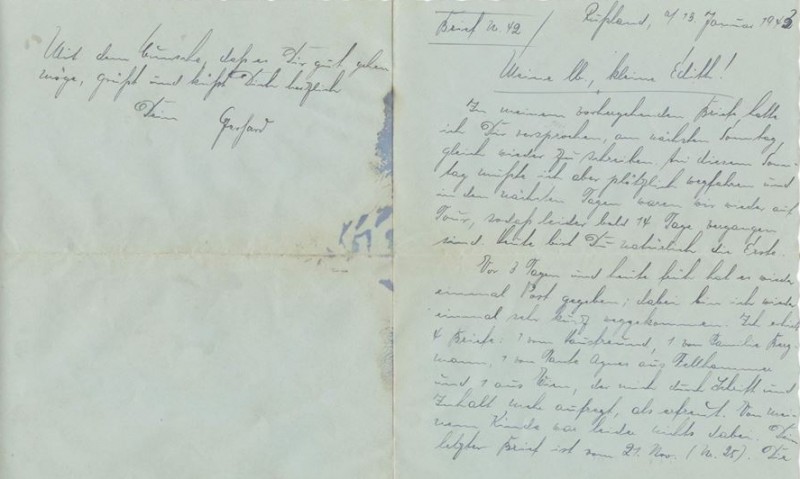 Mit dem Wunsche, daß es Dir gut gehen
möge, grüßt und küßt Dich herzlich
Dein Gerhard
Brief Nr. 42 / Rußland, d. 13. Januar 1943
Meine lb., kleine Edith!
In meinem vorhergehenden Briefe hatte
ich Dir versprochen, am nächsten Sonntag
gleich wieder zu schreiben. An diesem Sonn-
tag mußte ich aber plötzlich wegfahren und
in den nächsten Tagen waren wir wieder auf
Tour, sodaß leider bald 14 Tage vergangen
sind. Heute bist Du natürlich die Erste.
Vor 3 Tagen und heute früh hat es wieder
einmal Post gegeben; dabei bin ich wieder
einmal sehr kurz weggekommen. Ich erhielt
4 Briefe: 1 vom Hausfreund, 1 von Familie Berg-
mann, 1 von Tante Agnes aus
und 1 aus Wien, der mich durch Schrift und
Inhalt mehr aufregt, als erfreut. Von mei-
nem Kinde war leider nichts dabei. Dein
letzter Brief ist vom 21. Nov. (Nr. 25). Die